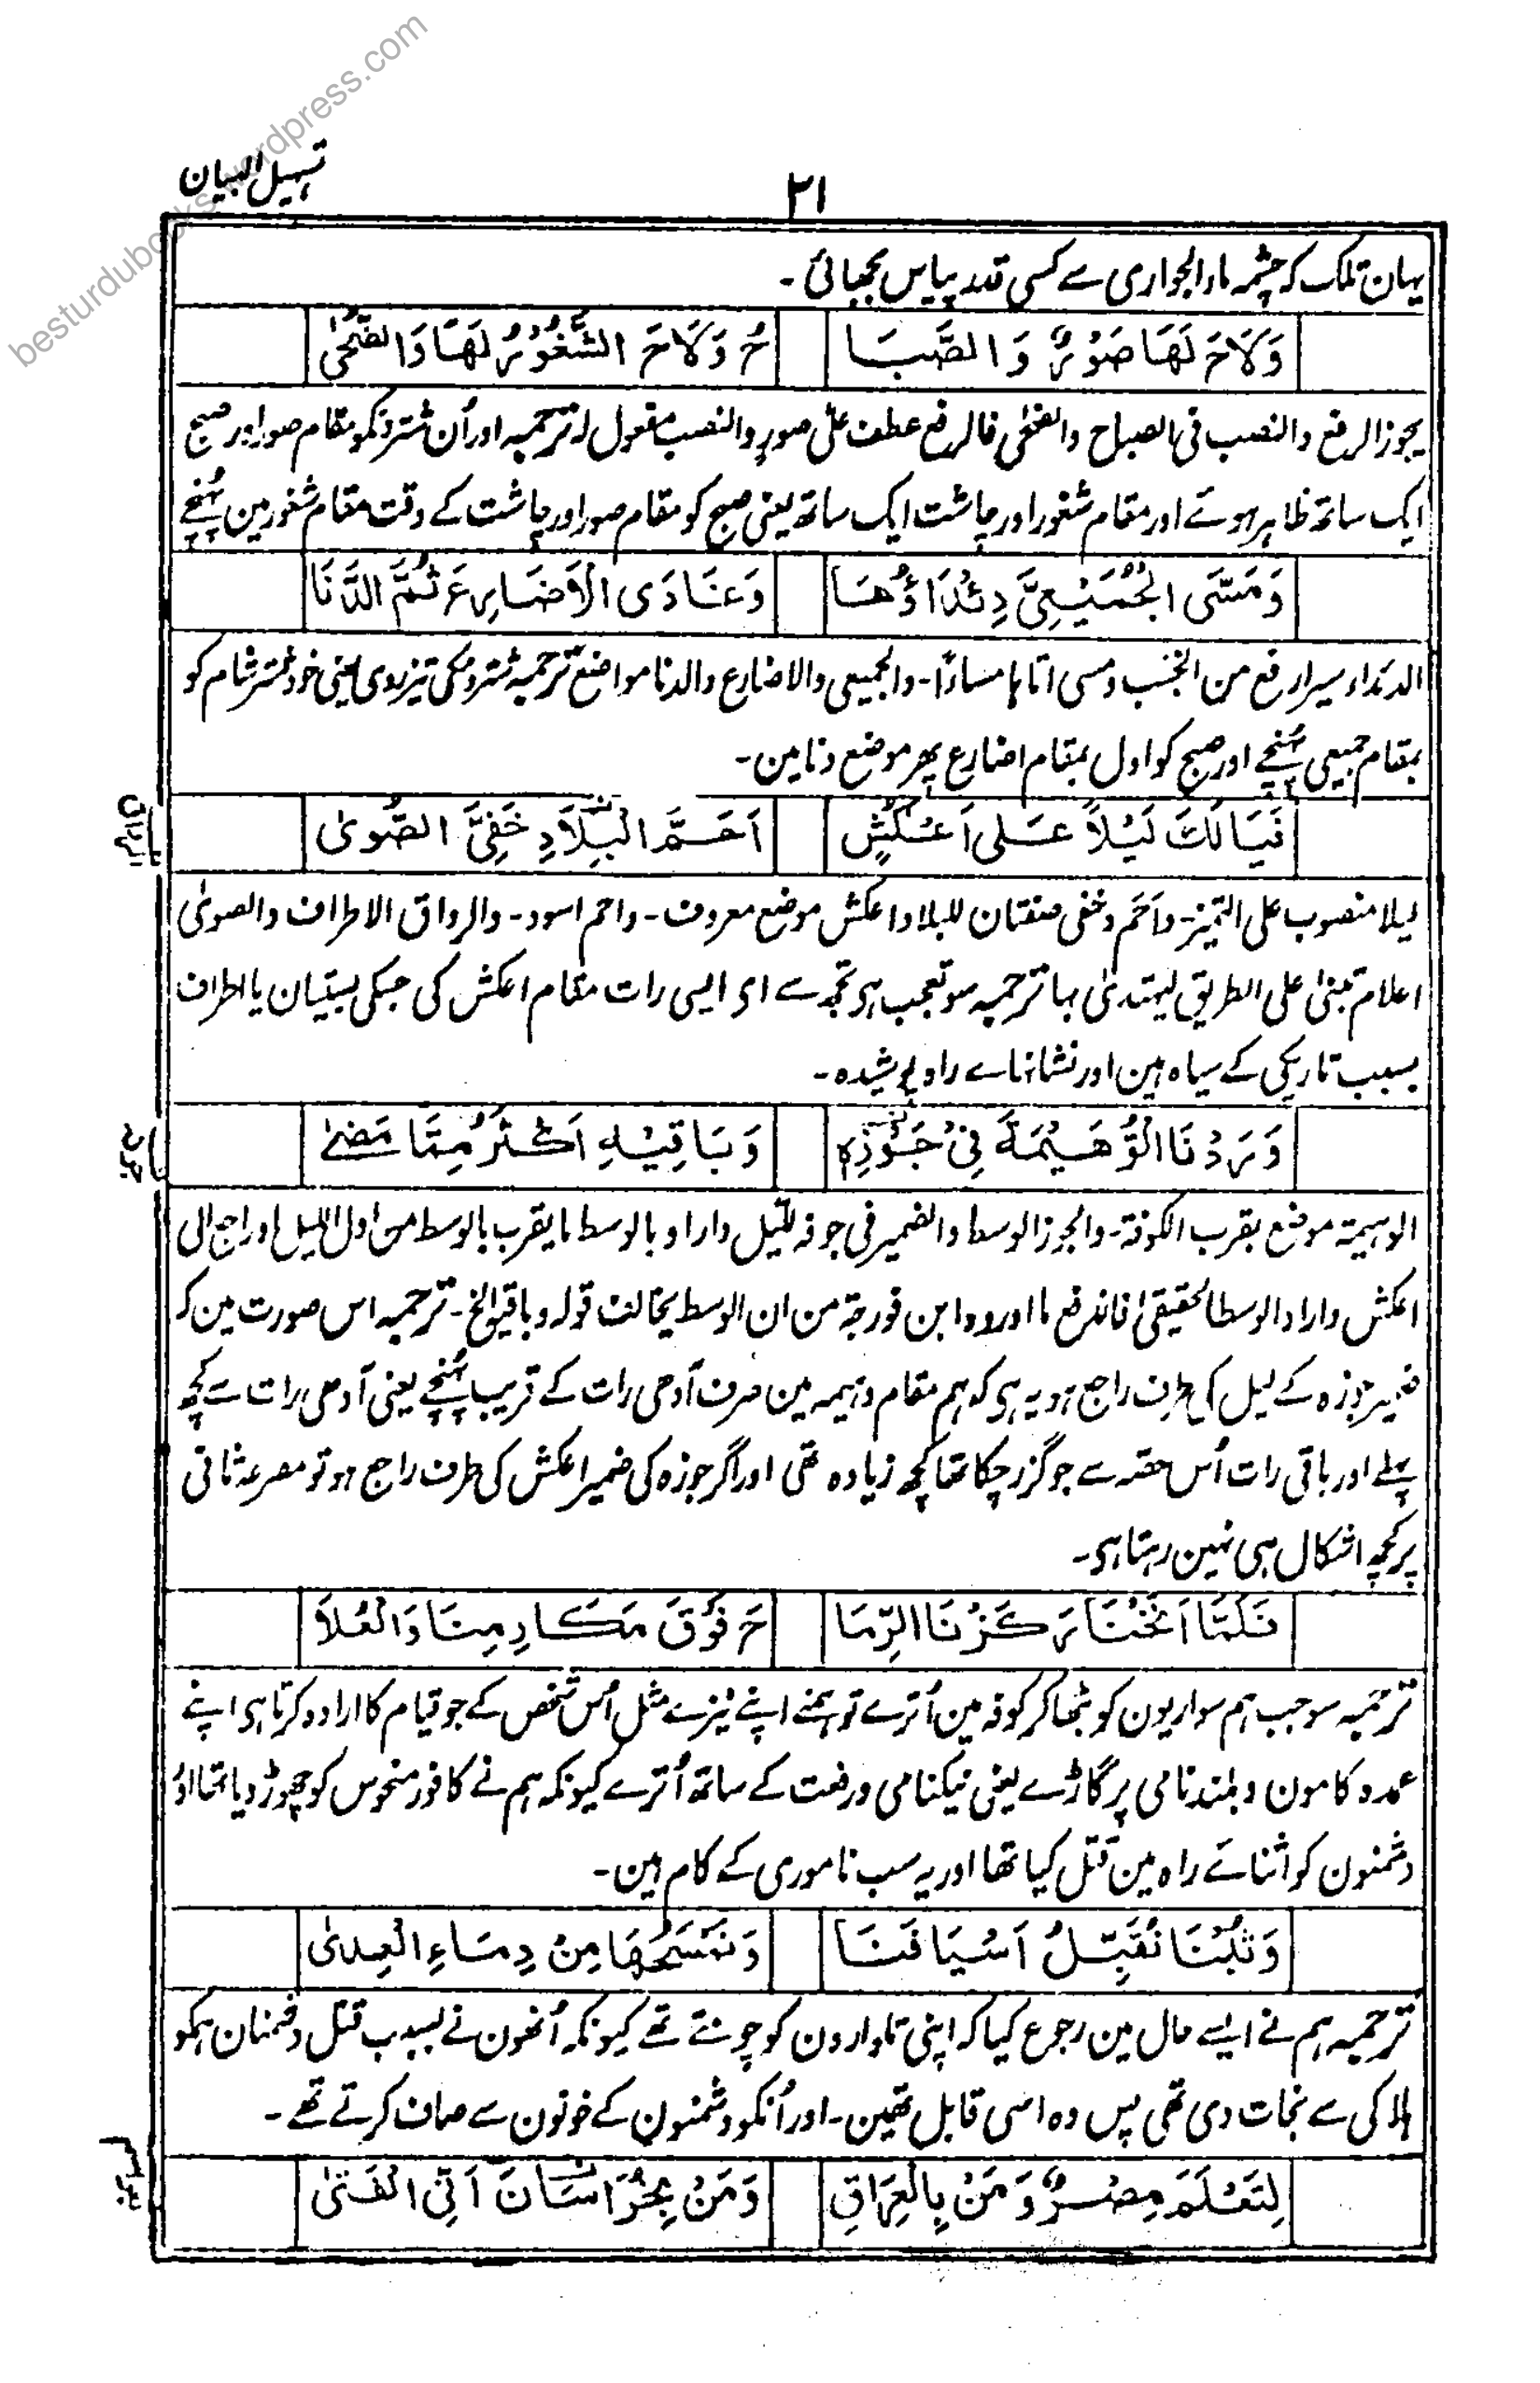 besturdubooks.wordpress.com
تسہیل البیان
٢١
یہان تلک کہ چشمہ ماء الجواری سے کسی قدر پیاس بجھائی ۔
وَلَاحَ لَهَا صَوْرٌ وَ الصَّبَا حُ وَلَاحَ الشَّغُوْرُ لَهَا وَالضُّحٰى
یجوز الرفع والنصب فی الصباح والضحٰی فالرفع عطف علی صورٍ والنصب مفعول لہ ترجمہ اور اُن شترونکو مقام صور اور صبح
ایک ساتھ ظاہر ہوئے اور مقام شغور اور چاشت ایک ساتھ یعنی صبح کو مقام صور اور چاشت کے وقت مقام شغور مین پُہنچے
وَمَسَّى الْجُمَيْعِيَّ دِئْدَاؤُهَا وَغَادَى الْاَضَارِعَ ثُمَّ الدَّنَا
الدئداء سیر ارفع من الخبب ومسی اتاہا مساءً ۔ والجمیعی والاضارع والدنا مواضع ترجمہ شترونکی تیزروی یعنی خود شتر شام کو
بمقام جمیعی پُہنچے اور صبح کو اول بمقام اضارع پھر موضع دنا مین ۔
فَيَا لَكَ لَيْلًا عَلى اَعْكُشٍ اَحَمَّ الْبِلَادِ خَفِيَّ الصُّوىٰ
الرواق
لیلا منصوب علی التمیز ۔ واَحَم وخفی صفتان للبلاد واعکش موضع معروف ۔ واحم اسود ۔ والرواق الاطراف والصوٰی
اعلام تبنیٰ علی الطریق لیہتدیٰ بہا ترجمہ سو تعجب ہی تجھ سے ای ایسی رات مقام اعکش کی جسکی بستیان یا اطراف
بسبب تاریکی کے سیاہ ہین اور نشانہاے راہ پوشیدہ ۔
وَرَدْنَا الْرُّهَيْمَةَ فِيْ جَوْزِهٖ وَبَاقِيْهِ اَكْثَرُ مِمَّا مَضىٰ
الوہیمۃ موضع بقرب الکوفۃ ۔ والجوز الوسط والضمیر فی جوفہ للیل واراد بالوسط ما یقرب بالوسط من اول اللیل او راجع الی
اعکش واراد الوسط الحقیقی فاندفع ما اوردہ ابن فورجۃ من ان الوسط یخالف قولہ وباقیہ الخ ۔ ترجمہ اس صورت مین کہ
ضمیر جوزہ کے لیل کی طرف راجع ہو یہ ہی کہ ہم مقام وہیمہ مین صرف آدھی رات کے قریب پُہنچے یعنی آدھی رات سے کچھ
پہلے اور باقی رات اُس حصہ سے جو گزر چکا تھا کچھ زیادہ تھی اور اگر جوزہ کی ضمیر اعکش کی طرف راجع ہو تو مصرعہ ثانی
پر کچھ اشکال ہی نہین رہتا ہی ۔
فَلَمَّا اَنَخْنَا رَكَزْنَا الرِّمَا حَ فَوْقَ مَكَارِمِنَا وَالْعُلَا
ترجمہ سو جب ہم سواریون کو بٹھا کر کوفہ مین اُترے تو ہمنے اپنے نیزے مثل اُس شخص کے جو قیام کا ارادہ کرتا ہی اپنے
عمدہ کامون و بلند نامی پر گاڑے یعنی نیکنامی و رفعت کے ساتھ اُترے کیونکہ ہم نے کافور منحوس کو چھوڑ دیا تھا اور
دشمنون کو اثنائے راہ مین قتل کیا تھا اور یہ سب ناموری کے کام ہین ۔
وَثُبْنَا نُقَبِّلُ اَسْيَافَنَا وَنَمْسَحُهَا مِنْ دِمَاءِ الْعِدىٰ
ترجمہ ہم نے ایسے حال مین رجوع کیا کہ اپنی تلوارون کو چومتے تھے کیونکہ اُنھون نے بسبب قتل دشمنان ہمکو
ہلاکی سے نجات دی تھی پس وہ اسی قابل تھین ۔ اور اُنکو دشمنون کے خونون سے صاف کرتے تھے ۔
لِتَعْلَمَ مِصْرٌ وَمَنْ بِالْعِرَاقِ وَمَنْ بِخُرَاسَانَ اَنِّي الْفَتىٰ